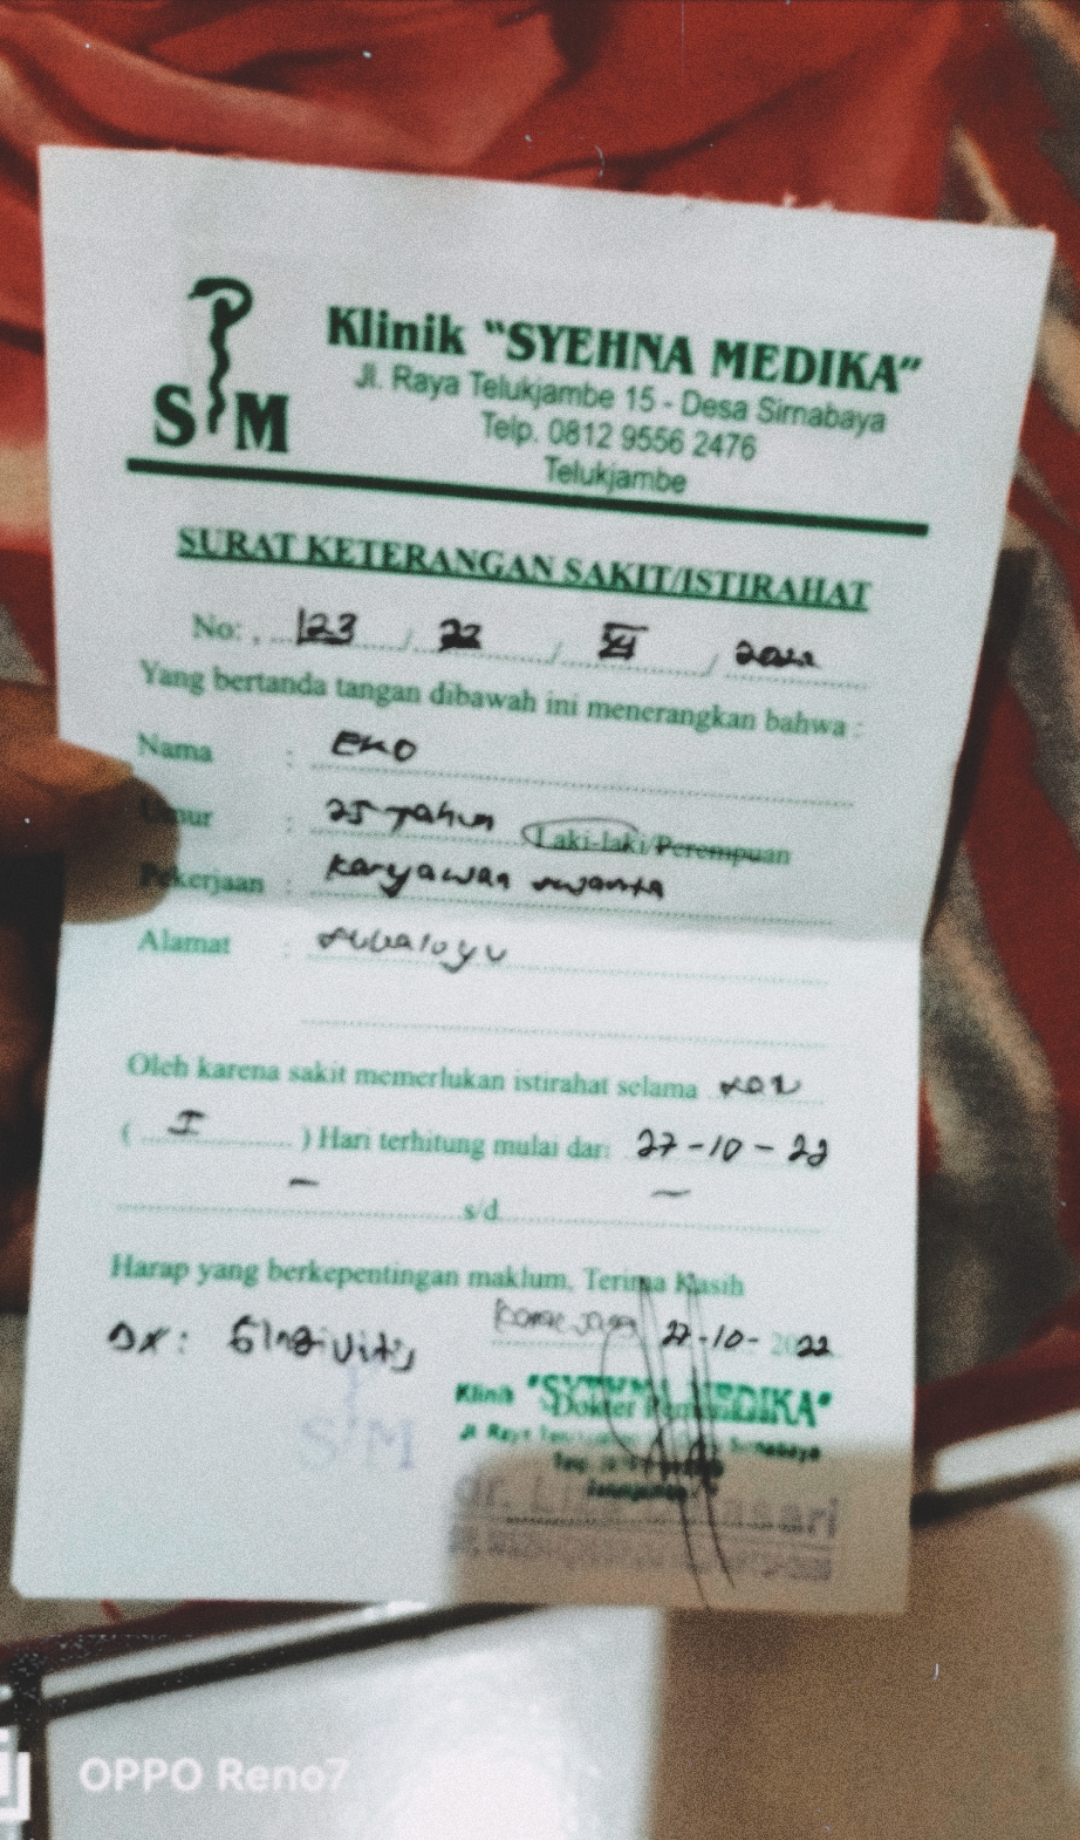 S M
Klinik "SYEHNA MEDIKA"
Jl. Raya Telukjambe 15 - Desa Sirnabaya
Telp. 0812 9556 2476
Telukjambe
SURAT KETERANGAN SAKIT/ISTIRAHAT
No: , 123 / 22 / XI / 2022
Yang bertanda tangan dibawah ini menerangkan bahwa :
Nama : EKO
Umur : 25 Tahun Laki-laki/Perempuan
Pekerjaan : Karyawan swasta
Alamat :
Oleh karena sakit memerlukan istirahat selama
( I ) Hari terhitung mulai dari 27-10-22
- s/d -
Harap yang berkepentingan maklum. Terima Kasih
27-10-2022
DX: Gingivitis
Klinik "SYEHNA MEDIKA"
Dokter
SM
dr.
OPPO Reno7